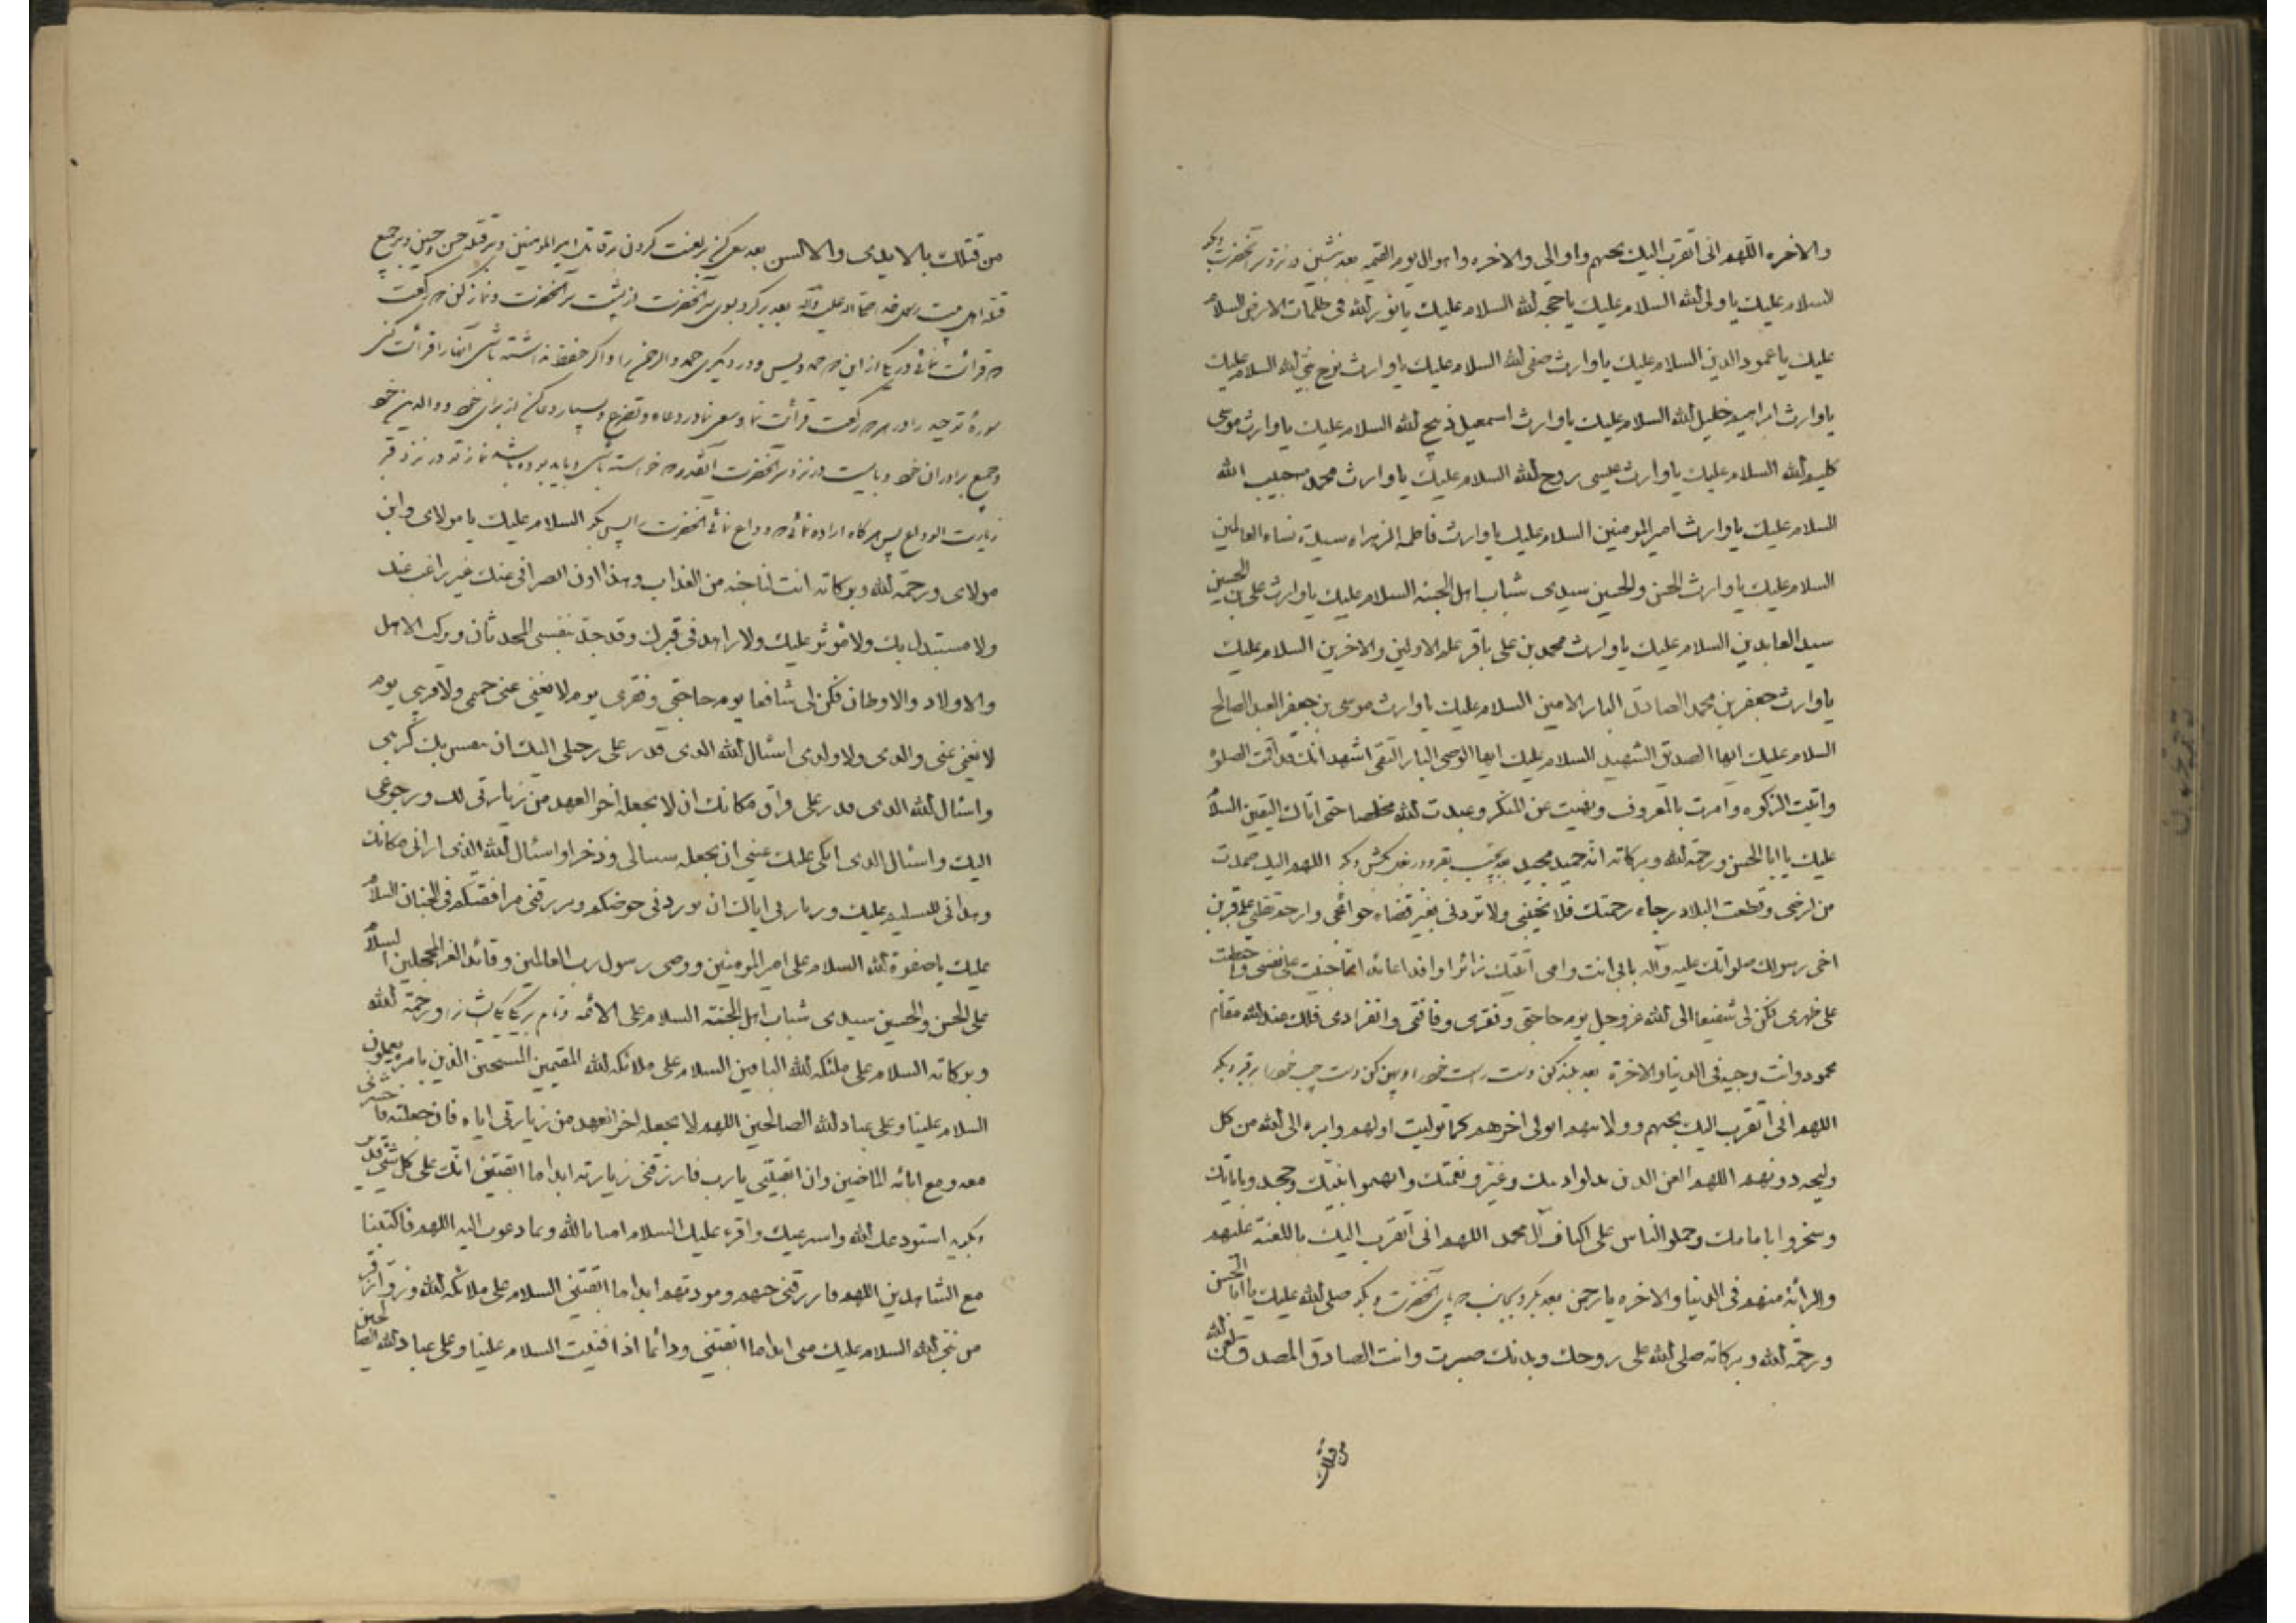 والاخره اللهم انی اتقرب الیک بحبهم واوالی والاخره واهوال یوم القیمه بعد بنشین در نزد سر آنحضرت وبگو
السلام علیک یا ولی الله السلام علیک یا حجه الله السلام علیک یا نور الله فی ظلمات الارض السلام
علیک یا عمود الدین السلام علیک یا وارث صفی الله السلام علیک یا وارث نوح نبی الله السلام علیک
یا وارث ابراهیم خلیل الله السلام علیک یا وارث اسمعیل ذبیح الله السلام علیک یا وارث موسی
کلیم الله السلام علیک یا وارث عیسی روح الله السلام علیک یا وارث محمد حبیب الله
السلام علیک یا وارث امیر المومنین السلام علیک یا وارث فاطمه الزهراء سیدة نساء العالمین
السلام علیک یا وارث الحسن والحسین سیدی شباب اهل الجنه السلام علیک یا وارث علی بن الحسین
سید العابدین السلام علیک یا وارث محمد بن علی باقر علم الاولین والاخرین السلام علیک
یا وارث جعفر بن محمد الصادق البار الامین السلام علیک یا وارث موسی بن جعفر العبد الصالح
السلام علیک ایها الصدیق الشهید السلام علیک ایها الوصی البار التقی اشهد انک قد اقمت الصلوة
واتیت الزکوه وامرت بالمعروف ونهیت عن المنکر وعبدت الله مخلصا حتی اتاک الیقین السلام
علیک یا ابا الحسن ورحمة الله وبرکاته انه حمید مجید بعد بچسب بقبر ودر بغل کش وبگو اللهم الیک صمدت
من ارضی وقطعت البلاد رجاء رحمتک فلا تخیبنی ولا تردنی بغیر قضاء حوائجی وارحم تقلبی علی قبر بن
اخی رسولک صلواتک علیه وآله بابی انت وامی اتیتک زائرا وافدا عائذا مما جنیت علی نفسی واحتطبت
علی ظهری فکن لی شفیعا الی الله عز وجل یوم حاجتی وفقری وفاقتی وانفرادی فلک عند الله مقام
محمود وانت وجیه فی الدنیا والاخرة بعد بلند کن دست راست خود را وپهن کن دست چپ خود را بر قبر وبگو
اللهم انی اتقرب الیک بحبهم وولایتهم اتولی اخرهم کما تولیت اولهم وابرء الی الله من کل
ولیجه دونهم اللهم العن الذین بدلوا دینک وغیروا نعمتک واتهموا نبیک وجحدوا بایاتک
وسخروا بامامک وحملوا الناس علی اکتاف آل محمد اللهم انی اتقرب الیک باللعنة علیهم
والبرائة منهم فی الدنیا والاخره یا رحمن بعد بگرد بجانب پای آنحضرت وبگو صلی الله علیک یا ابا الحسن
ورحمة الله وبرکاته صلی الله علی روحک وبدنک صبرت وانت الصادق المصدق لعن الله
من قتلک
من قتلک بالایدی والالسن بعد سعی کن در لعنت کردن بر قاتل امیر المومنین وبر قتله حسن وحسین وبر جمیع
قتله اهل بیت رسول خدا صلی الله علیه وآله بعد برگرد بسوی سر آنحضرت از پشت سر آنحضرت ونماز کن دو رکعت
که قرائت نمائی در یکی از این دو حمد ویس ودر دیگری حمد والرحمن را واگر حفظ نداشته باشی آنها را قرائت کن
سوره توحید را در هر دو رکعت قرائت نما وسعی نما در دعاء وتضرع وبسیار دعا کن از برای خود ووالدین خود
وجمیع برادران خود وبایست در نزد سر آنحضرت آنقدر که خواسته باشی وباید بوده باشد نماز تو در نزد قبر
زیارت الوداع پس هرگاه اراده نمائی که وداع نمائی آنحضرت را پس بگو السلام علیک یا مولای وابن
مولای ورحمة الله وبرکاته انت لنا جنه من العذاب وهذا اوان انصرافی عنک غیر راغب عنک
ولا مستبدل بک ولا مؤثر علیک ولا زاهد فی قبرک وقد جدت بنفسی للحدثان وترکت الاهل
والاولاد والاوطان فکن لی شافعا یوم حاجتی وفقری یوم لا یغنی عنی حمیمی ولا قریبی یوم
لا یغنی عنی والدی ولا ولدی اسئال الله الذی قدر علی رحیلی الیک ان ینفس بک کربی
واسئال الله الذی قدر علی فراق مکانک ان لا یجعله اخر العهد من زیارتی لک ورجوعی
الیک واسئال الذی ابکی علیک عینی ان یجعله سببا لی وذخرا واسئال الله الذی ارانی مکانک
وهدانی للتسلیم علیک وزیارتی ایاک ان یوردنی حوضکم ویرزقنی مرافقتکم فی الجنان السلام
علیک یا صفوة الله السلام علی امیر المومنین ووصی رسول رب العالمین وقائد الغر المحجلین السلام
علی الحسن والحسین سیدی شباب اهل الجنة السلام علی الائمه ورحمة الله
وبرکاته السلام علی ملئکه الله الباقین السلام علی ملائکه الله المقیمین المسبحین الذین بامره یعملون
السلام علینا وعلی عباد الله الصالحین اللهم لا تجعله اخر العهد من زیارتی ایاه فان جعلته فاحشرنی
معه ومع ابائه الماضین وان ابقیتنی یا رب فارزقنی زیارته ابدا ما ابقیتنی انک علی کل شیء قدیر
وبگوید استودعک الله واسترعیک واقرء علیک السلام امنا بالله وبما دعوت الیه اللهم فاکتبنا
مع الشاهدین اللهم فارزقنی حبهم ومودتهم ابدا ما ابقیتنی السلام علی ملائکه الله وزوار قبر
ابن نبی الله السلام علیک منی ابدا ما ابقیتنی ودائما اذا فنیت السلام علینا وعلی عباد الله الصالحین